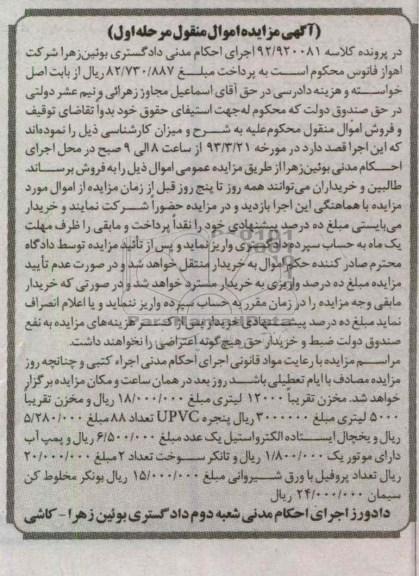 (آگهی مزایده اموال منقول مرحله اول)
در پرونده کلاسه ۹۲/۹۲۰۰۸۱ اجرای احکام مدنی دادگستری بوئین‌زهرا شرکت
اهواز فانوس محکوم است به پرداخت مبلغ ۸۲/۷۳۰/۸۸۷ ریال از بابت اصل
خواسته و هزینه دادرسی در حق آقای اسماعیل مجاوز زهرائی و نیم عشر دولتی
در حق صندوق دولت که محکوم له جهت استیفای حقوق خود بدوا تقاضای توقیف
و فروش اموال منقول محکوم‌علیه به شرح و میزان کارشناسی ذیل را نموده‌اند
که این اجرا قصد دارد در مورخه ۹۳/۳/۲۱ از ساعت ۸ الی ۹ صبح در محل اجرای
احکام مدنی بوئین‌زهرا از طریق مزایده عمومی اموال ذیل را به فروش برساند.
طالبین و خریداران می‌توانند همه روز تا پنج روز قبل از زمان مزایده از اموال مورد
مزایده با هماهنگی این اجرا بازدید و در مزایده حضوراً شرکت نمایند و خریدار
می‌بایستی مبلغ ده درصد پیشنهادی خود را نقداً پرداخت و مابقی را ظرف مهلت
یک ماه به حساب سپرده دادگستری واریز نماید و پس از تأیید مزایده توسط دادگاه
محترم صادر کننده حکم اموال به خریدار منتقل خواهد شد و در صورت عدم تأیید
مزایده مبلغ ده درصد واریزی به خریدار مسترد خواهد شد و در صورتی که خریدار
مابقی وجه مزایده را در زمان مقرر به حساب سپرده واریز ننماید و یا اعلام انصراف
نماید مبلغ ده درصد پیشنهادی خریدار پس از کسر هزینه‌های مزایده به نفع
صندوق دولت ضبط و خریدار حق هیچ‌گونه اعتراضی را نخواهند داشت.
مراسم مزایده با رعایت مواد قانونی اجرای احکام مدنی اجراء کتبی و چنانچه روز
مزایده مصادف با ایام تعطیلی باشد روز بعد در همان ساعت و مکان مزایده برگزار
خواهد شد. مخزن تقریباً ۱۲۰۰۰ لیتری مبلغ ۱۸/۰۰۰/۰۰۰ ریال و مخزن تقریباً
۵۰۰۰ لیتری مبلغ ۳۰۰۰۰۰۰ ریال پنجره UPVC تعداد ۸۸ مبلغ ۵/۲۸۰/۰۰۰
ریال و یخچال ایستاده الکترواستیل یک عدد مبلغ ۶/۵۰۰/۰۰۰ ریال و پمپ آب
دارای موتور یک ۱/۸۰۰/۰۰۰ ریال و تانکر سوخت تعداد ۲ مبلغ ۲۰/۰۰۰/۰۰۰
ریال تعداد پروفیل با ورق شیروانی مبلغ ۱۵/۰۰۰/۰۰۰ ریال بونکر مخلوط کن
سیمان ۲۴/۰۰۰/۰۰۰ ریال
دادورز اجرای احکام مدنی شعبه دوم دادگستری بوئین زهرا - کاشی